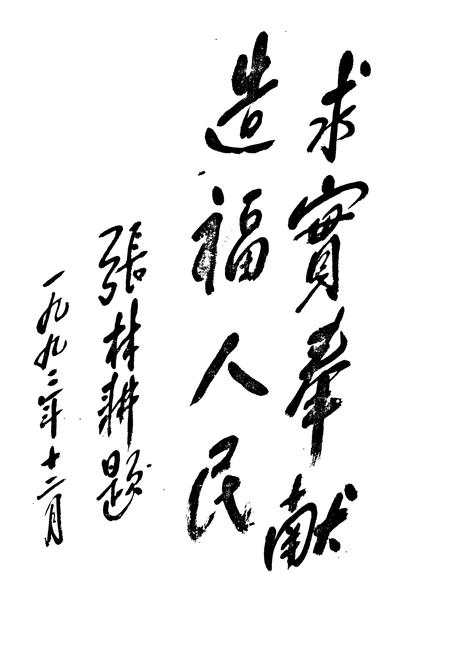 求實奉献
造福人民
張林耕題
一九九二年十二月